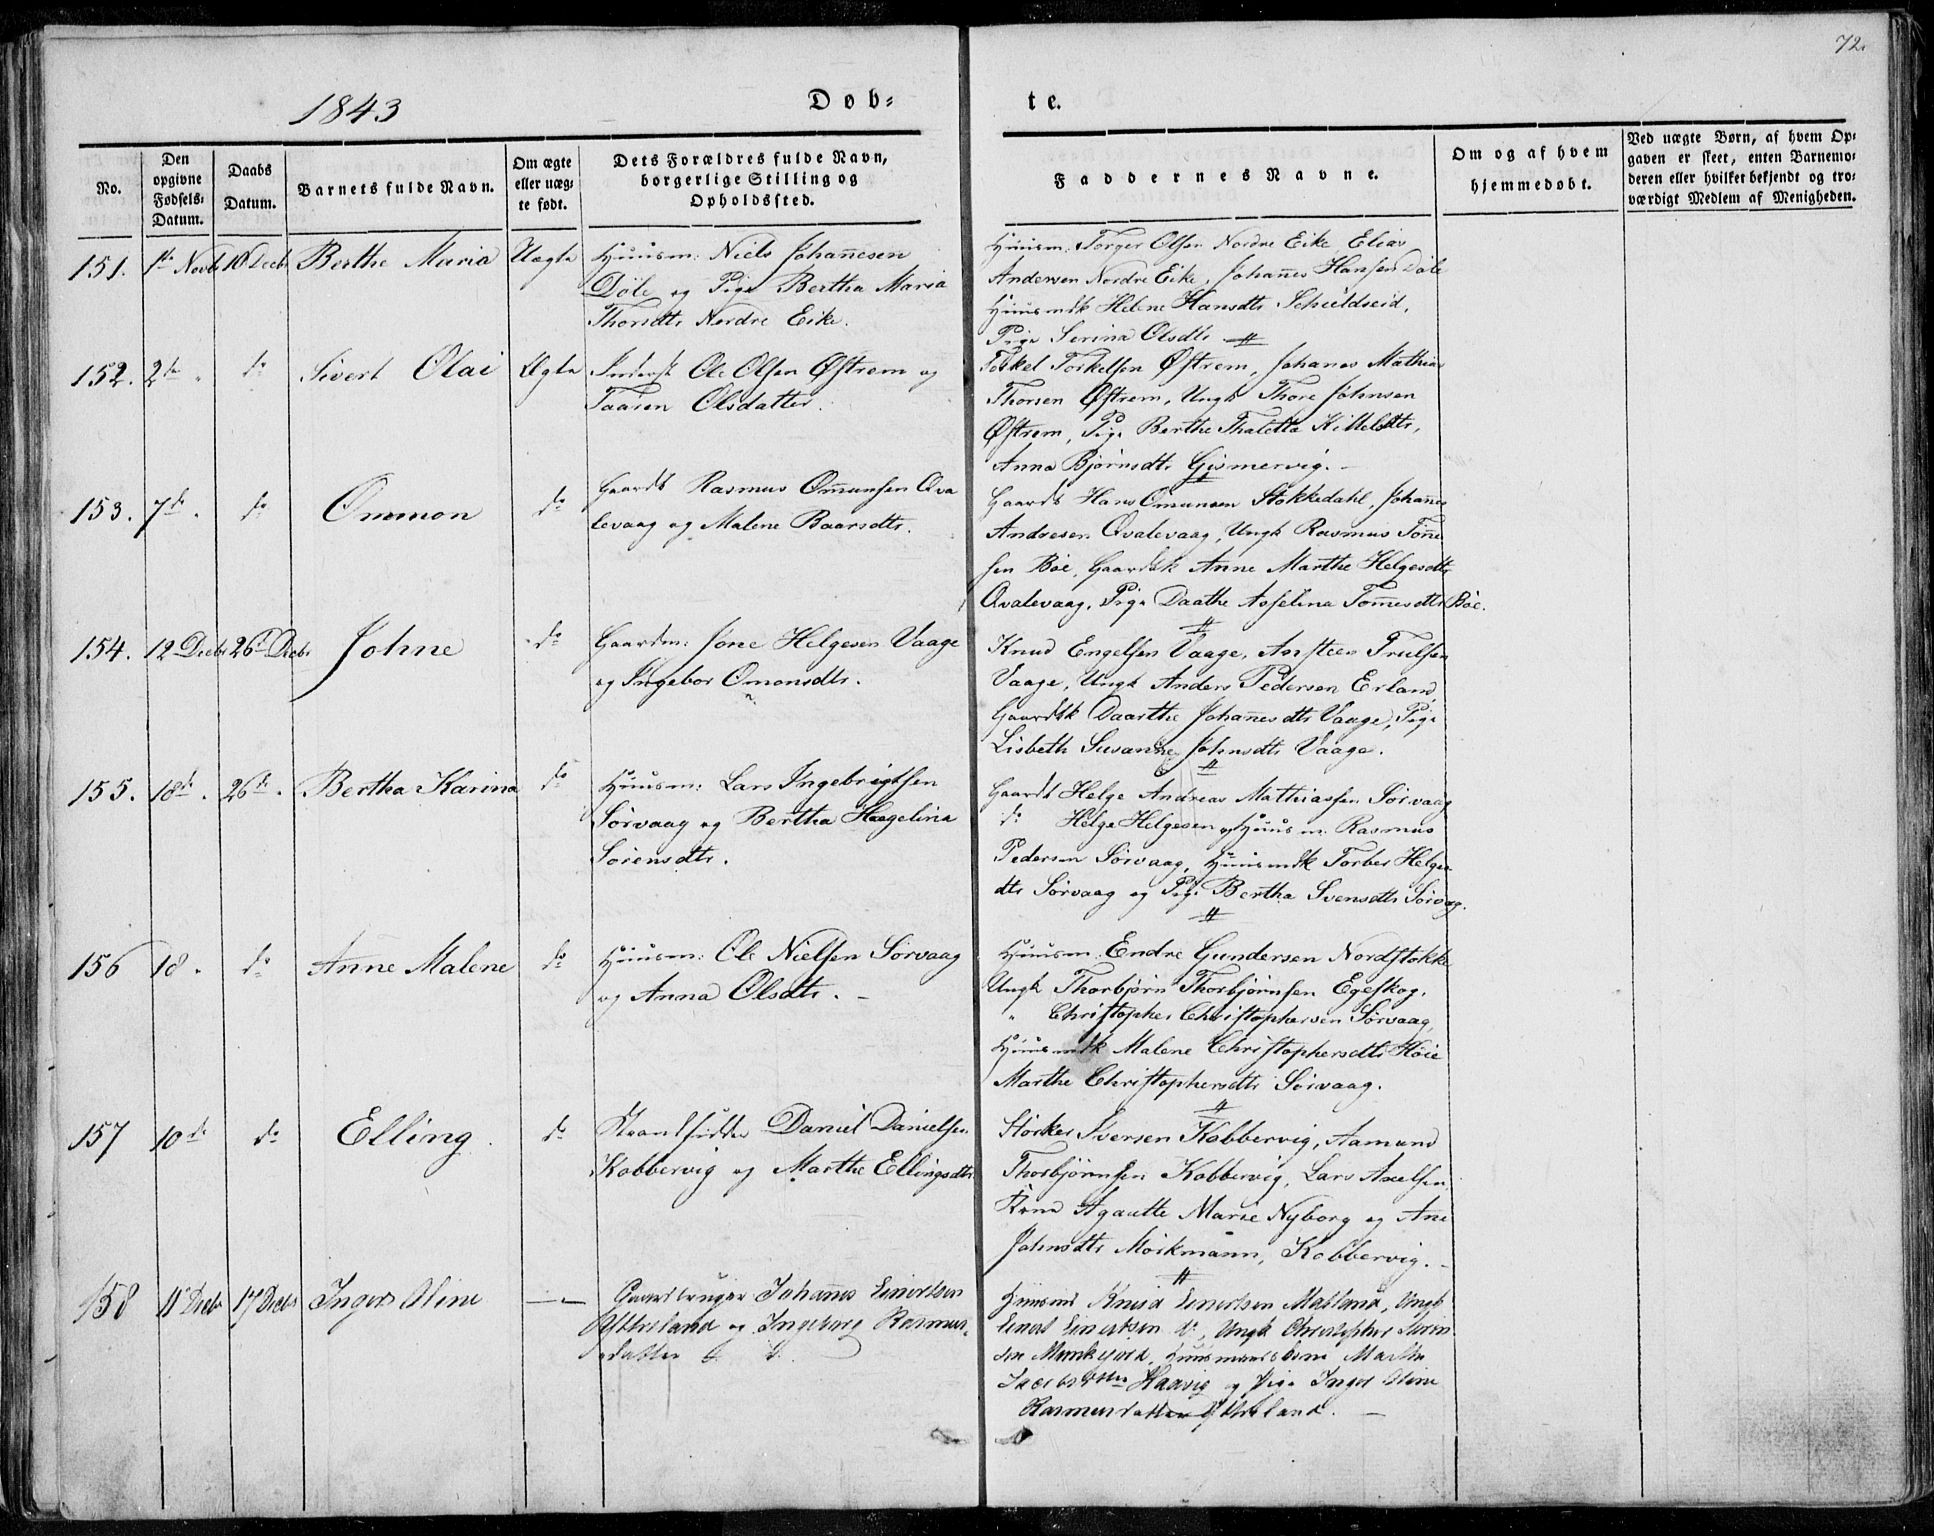 72.
1843
Døb=
te.
No.
Den opgivne Fødsels-Datum.
Daabs Datum.
Barnets fulde Navn.
Om ægte eller uægte født.
Dets Forældres fulde Navn, borgerlige Stilling og Opholdssted.
Faddernes Navne.
Om og af hvem hjemmedøbt.
Ved uægte Børn, af hvem Opgaven er skeet, enten Barnemoderen eller hvilket bekjendt og troværdigt Medlem af Menigheden.
151. 1ste Novb 10 Decb Berthe Maria Uægte
Huusm: Niels Johan̄esen
Døle og Pige Bertha Maria
Thorsdtr Nordre Eike.
Huusm: Torger Olsen Nordre Eike, Elias
Andersen Nordre Eike, Johan̄es Hansen Døle
Huusmdk Helene Hansdtr Schieldseid,
Pige Serina Olsdtr
152. 2de " do Sivert Olai Ægte
Ole Olsen Østrem og
Taaren Olsdatter.
Torkel Torkelsen Østrem, Johanes Mathias
Thorsen Østrem, Ungk Thore Johnsen
Østrem, Pige Berthe Thaletta Kittelsdtr,
Anna Bjørnsdtr Gismervig.
153. 7de " do Ommon do
Gaardb Rasmus Om̄unsen Qva
levaag og Malene Baarsdtr.
Gaardb Hans Omunsen Stokkedahl, Johan̄es
Andresen Qvalevaag, Ungk Rasmus Tøn̄e
sen Bøe, Gaardbk Anne Marthe Helgesdtr
Qvalevaag, Pige Daathe Asselina Tøn̄esdtr Bøe.
154. 12 Decbr 26 Decbr Johne do
Gaardm: Jone Helgesen Vaage
og Ingebor Omonsdtr.
Knud Engelsen Vaage, Ansteen Trulsen
Vaage, Ungk Anders Pedersen Erland,
Gaardbk Daarthe Johan̄esdtr Vaage, Pige
Lisbeth Susanne Johnsdtr Vaage.
155. 18de " 26de " Bertha Karina do
Huusm: Lars Ingebrigtsen
Sørvaag og Bertha Hægelina
Sørensdtr.
Gaardb Helge Andreas Mathiassen Sørvaag
do Helge Helgesen og Huusm: Rasmus
Pedersen Sørvaag, Huusmdk Torber Helges
dtr Sørvaag og Pige Bertha Svensdtr Sørvag.
156 18 " do An̄e Malene do
Huusm: Ole Nielsen Sørvaag
og Anna Olsdtr. -
Huusm: Endre Gundersen Nordstokke
Ungk Thorbjørn Thorbjørnsen Egeskog,
" Christopher Christophersen Sørvaag,
Huusmdk Malene Christophersdtr Høie
Marthe Christophersdtr Sørvaag.
157 10de do Elling. do
Strandsidder Daniel Danielsen
Kobbervig og Marthe Ellingsdtr
Størker Iversen Kobbervig, Aamund
Thorbjørnsen Kobbervig, Lars Axelsen,
Kone Agautte Marie Nyborg og Ane
Johnsdtr Mørkmann, Kobbervig. -
158 11 Decbr 17 Decbr Inger Oline
Gaardbruger Johannes Einertsen
Østhusland og Ingeborg Rasmus
datter
Huusmd Knud Einertsen Matland, Ungk
Einert Einertsen do, Ungk Christopher
Munkejord, Huusmandskone Marthe
Jacobsdtr Haavig og Pige Inger Oline
Rasmusdatter Østhusland. -